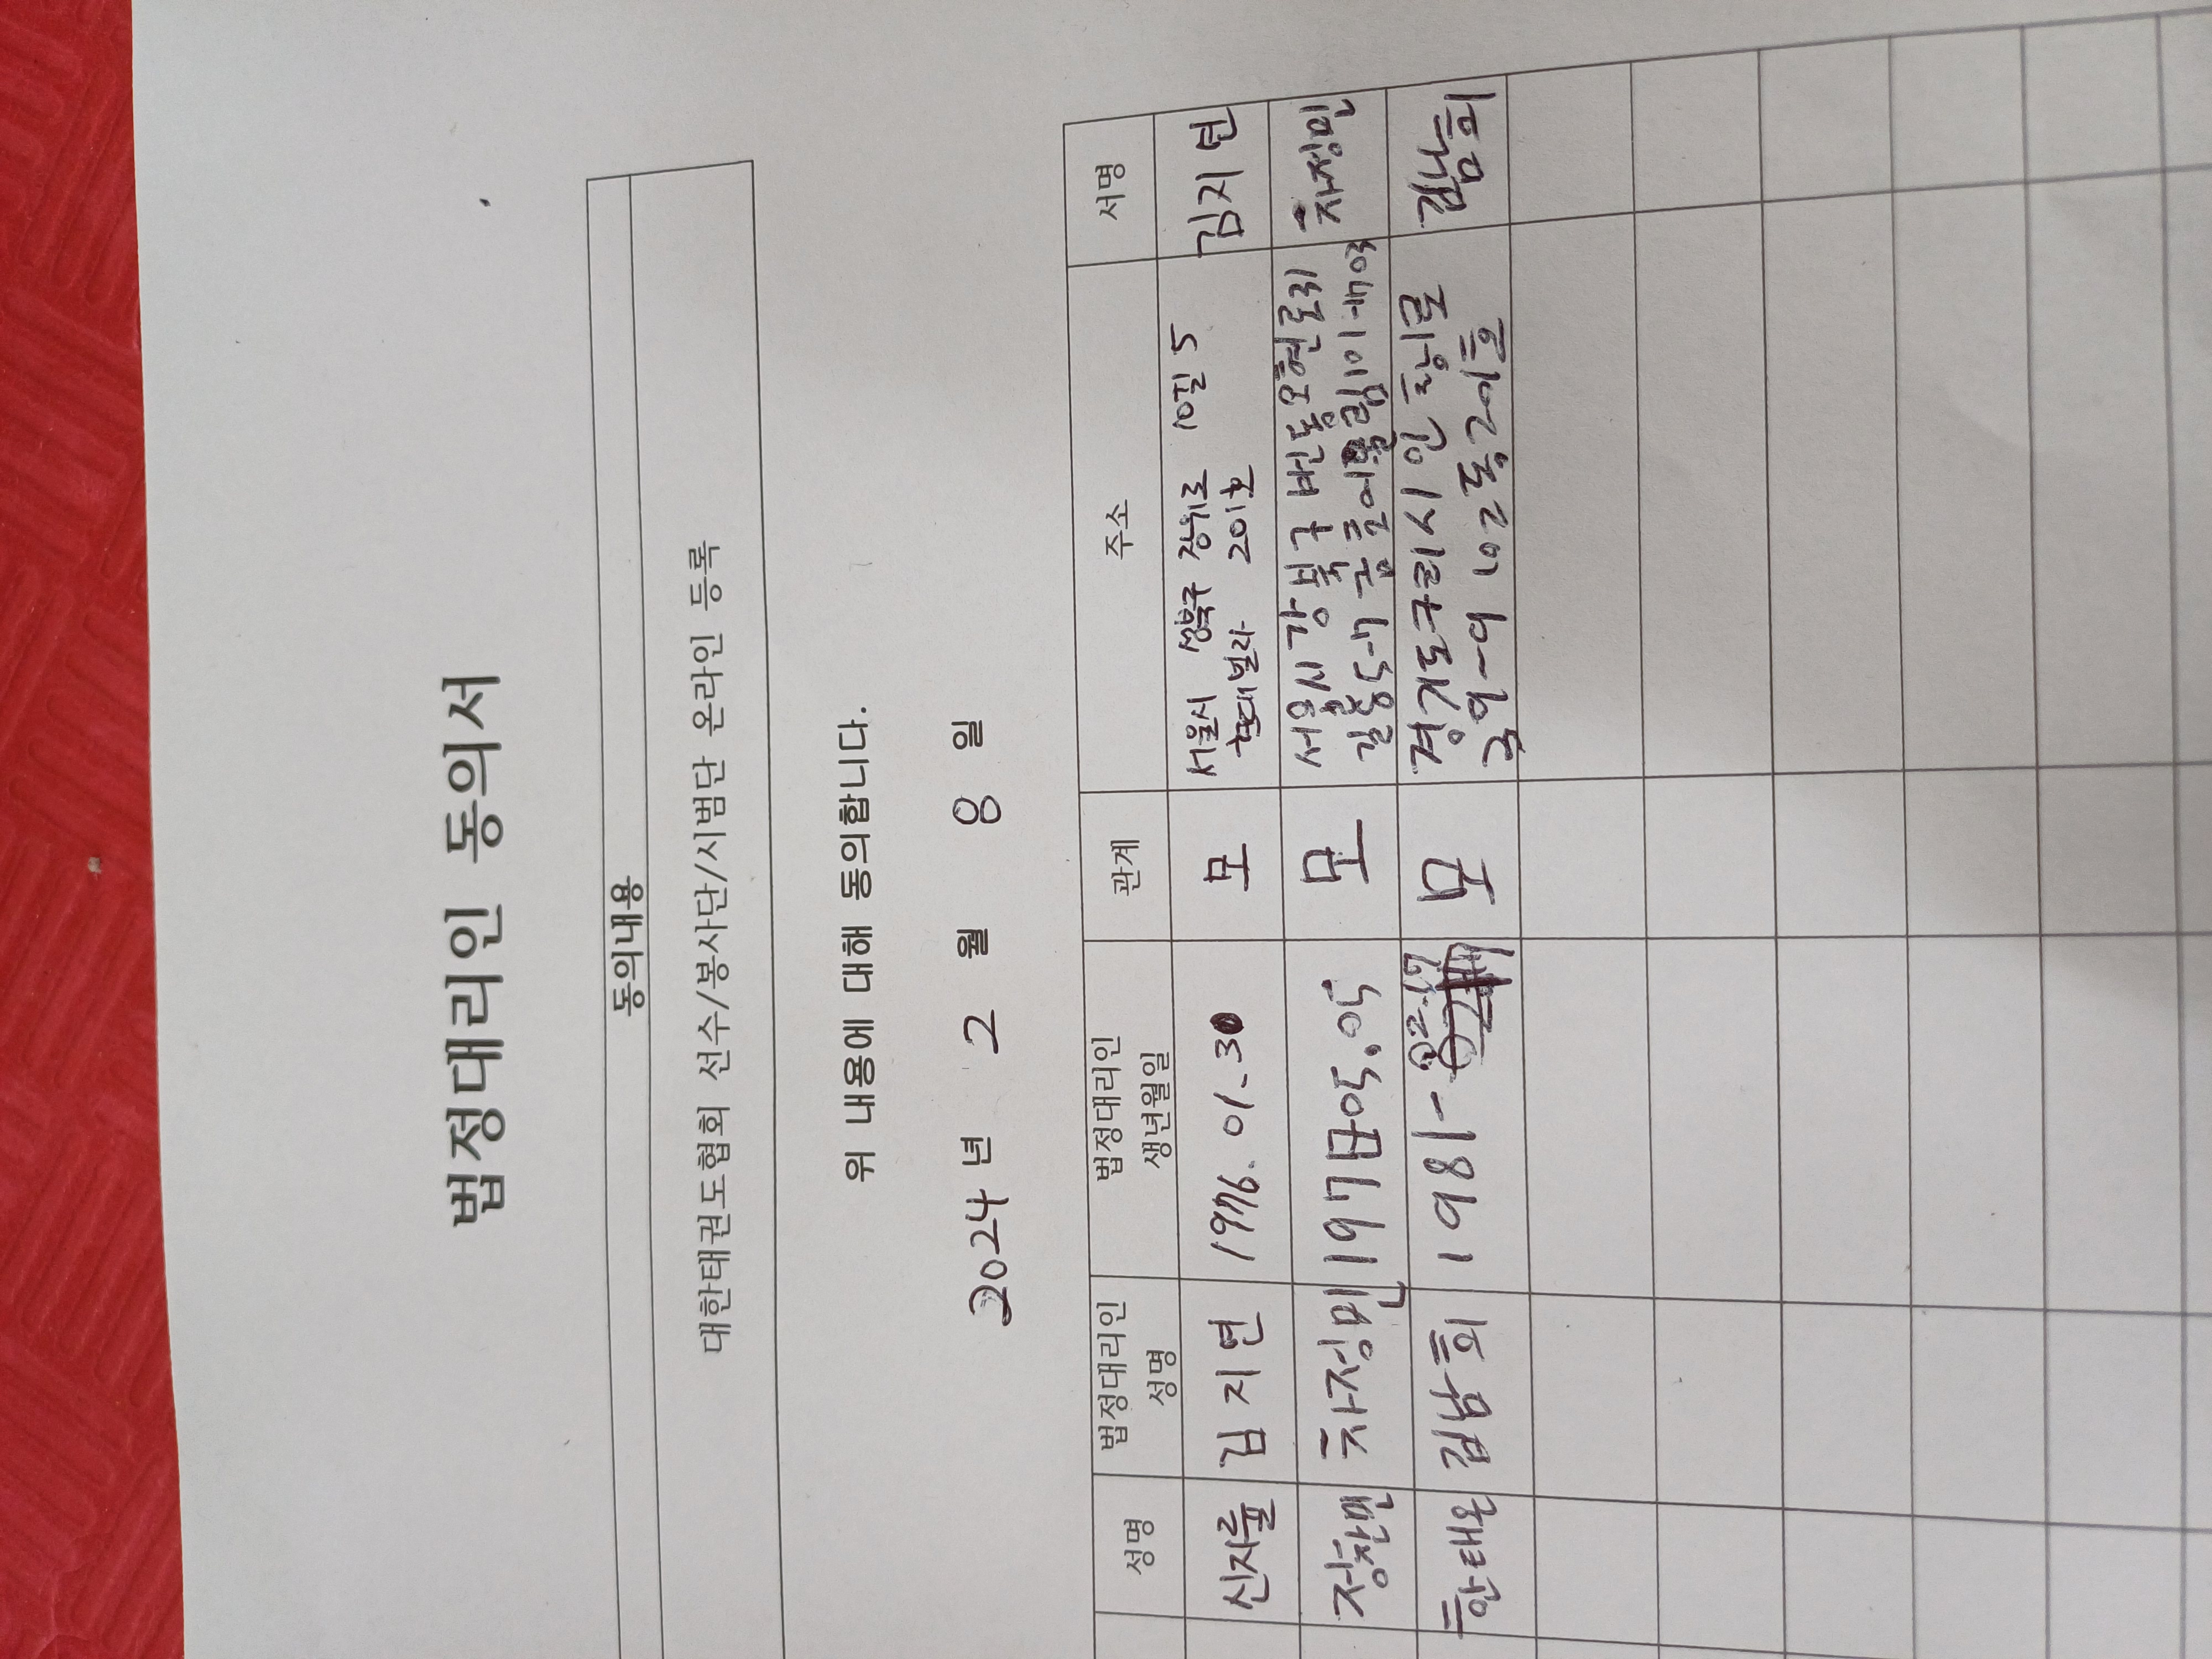 법정대리인 동의서
동의내용
대한태권도협회 선수/봉사단/시범단 온라인 등록
위 내용에 대해 동의합니다.
2024 년 2 월 8 일
성명 법정대리인 성명 법정대리인 생년월일 관계 주소 서명
신지율 김지연 1976. 01. 30 모 서울시 성북구 장위로 10길 5 김지연
현대빌라 201호
장찬민 차정민 197 05.05 모 서울시 강북구 번동 오현로31 차정민
길 5-7 101-703
한태온 김남희 1981- 02-17 모 경기도 구리시 인창로 김남희
102동 201호